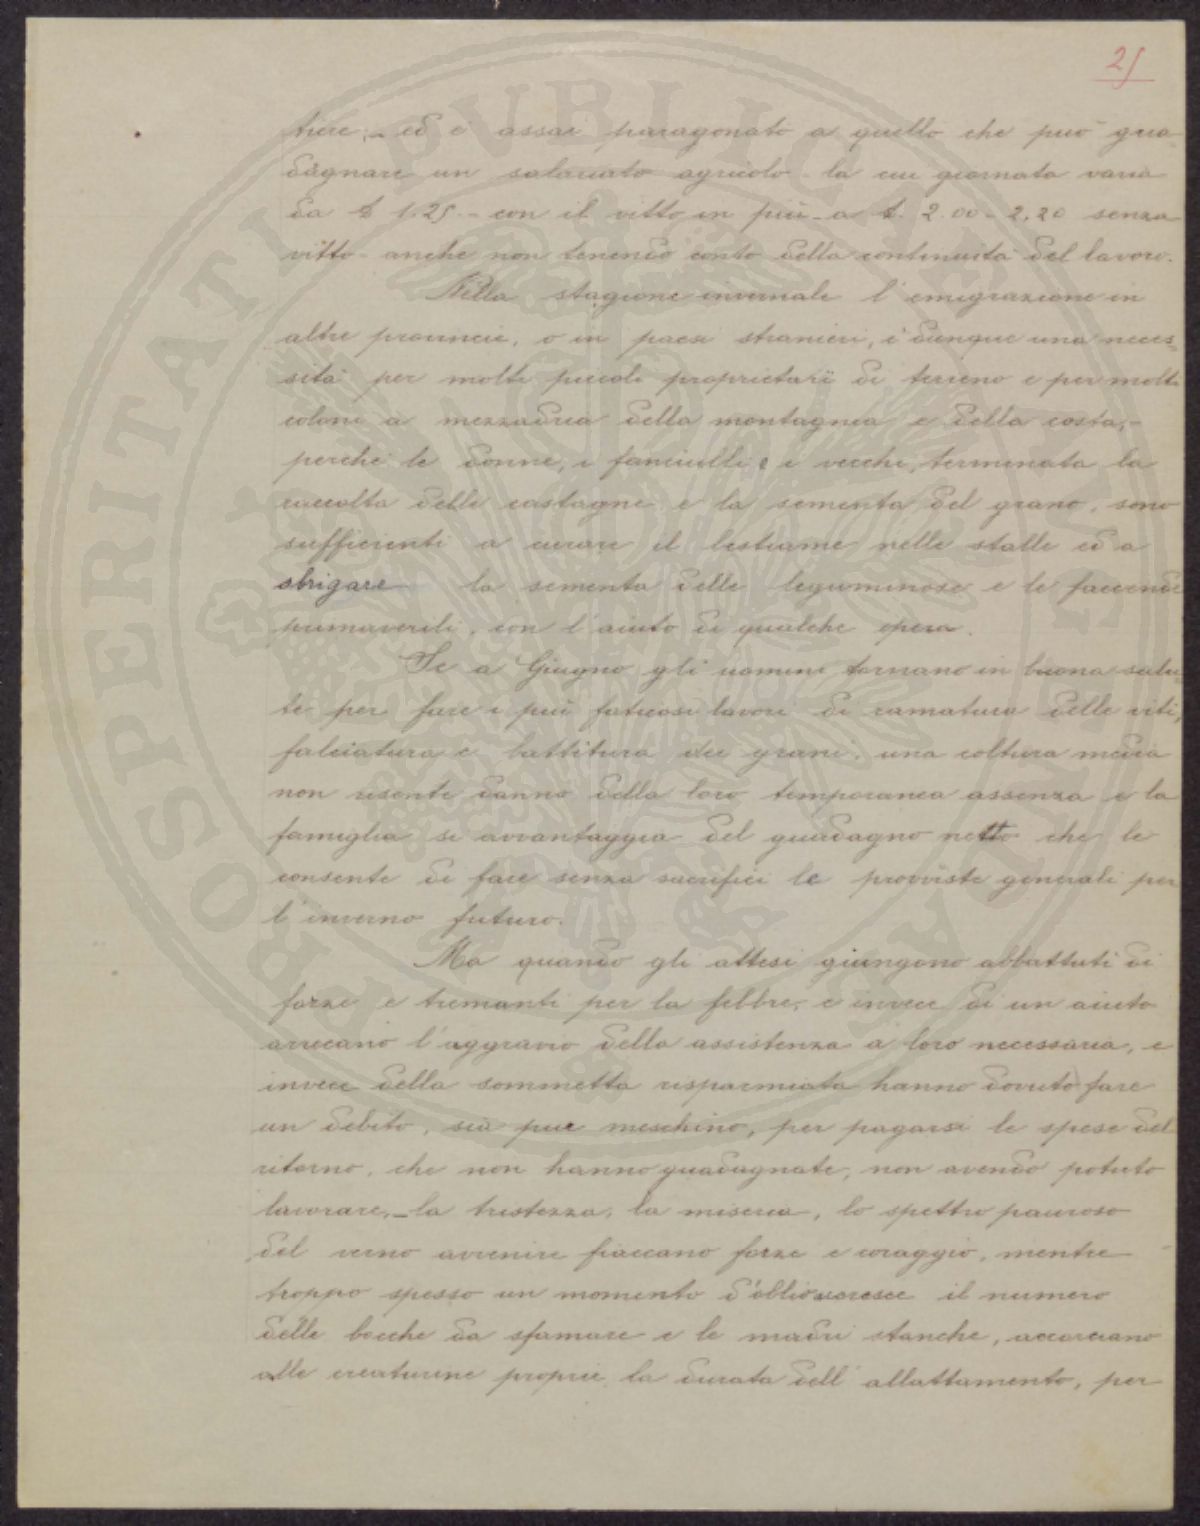 25
tiere; - ed è assai paragonato a quello che può gua-
dagnare un salariato agricolo - la cui giornata varia
da £ 1.25 - con il vitto in più - a £. 2.00 - 2,20 senza
vitto - anche non tenendo conto della continuità del lavoro.
Nella stagione invernale l'emigrazione in
altre provincie, o in paesi stranieri, è dunque una neces-
sità per molti piccoli proprietarî di terreno e per molti
coloni a mezzadria della montagna e della costa; -
perchè le donne, i fanciulli e i vecchi, terminata la
raccolta delle castagne e la sementa del grano, sono
sufficienti a curare il bestiame nelle stalle ed a
sbrigare la sementa delle leguminose e le faccende
primaverili, con l'aiuto di qualche opera.
Se a Giugno gli uomini tornano in buona salu-
te per fare i più faticosi lavori di ramatura delle viti,
falciatura e battitura dei grani, una coltura media
non risente danno della loro temporanea assenza e la
famiglia si avvantaggia del guadagno netto che le
consente di fare senza sacrifici le provviste generali per
l'inverno futuro.
Ma quando gli attesi giungono abbattuti di
forze e tremanti per la febbre; e invece di un aiuto
arrecano l'aggravio della assistenza a loro necessaria, e
invece della sommetta risparmiata hanno dovuto fare
un debito, sia pur meschino, per pagarsi le spese del
ritorno, che non hanno guadagnate, non avendo potuto
lavorare, - la tristezza, la miseria, lo spettro pauroso
del verno avvenire fiaccano forze e coraggio, mentre
troppo spesso un momento d'oblio accresce il numero
delle bocche da sfamare e le madri stanche, accorciano
alle creaturine proprie la durata dell'allattamento, per
PROSPERITATI PVBLICAE